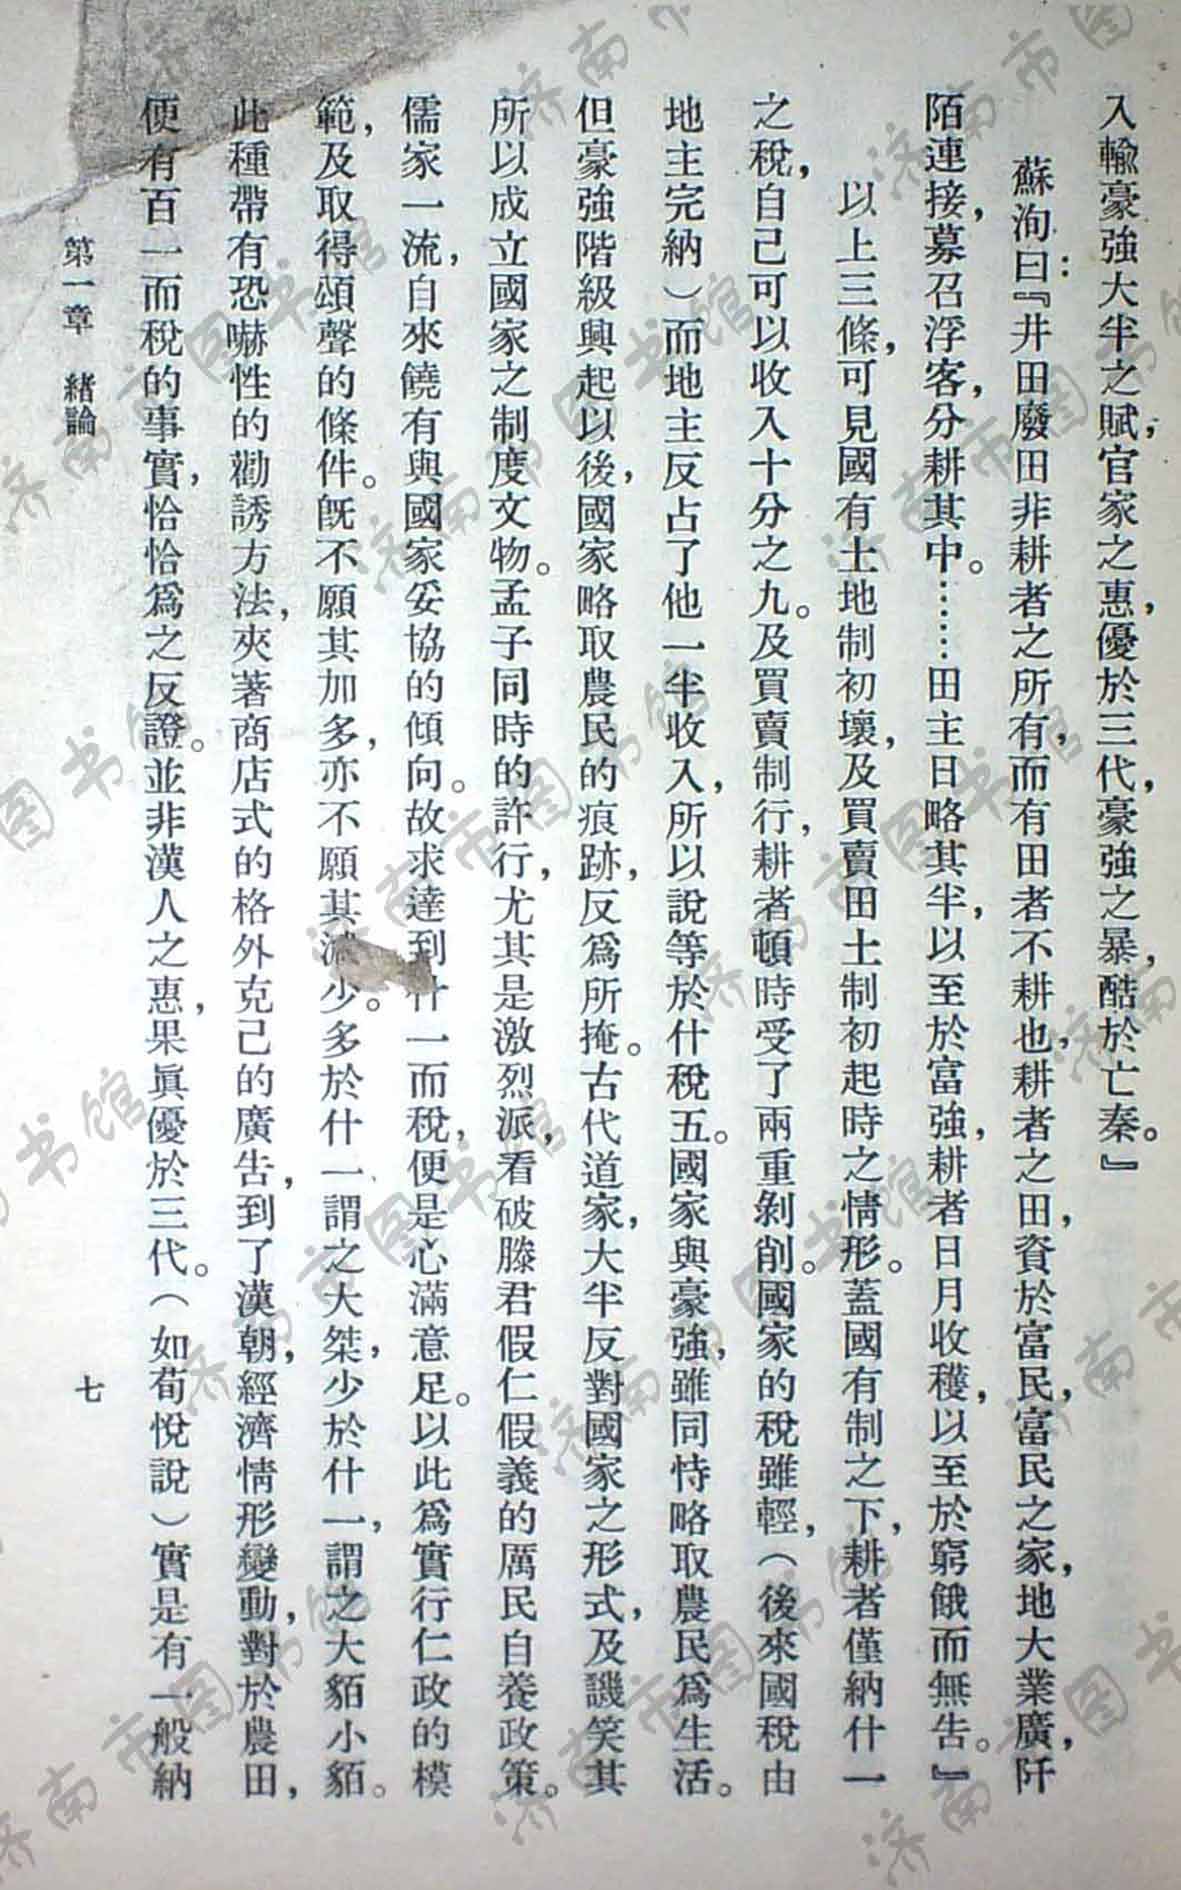 入輸豪強大半之賦，官家之惠，優於三代，豪強之暴，酷於亡秦。』
蘇洵曰：『井田廢田非耕者之所有，而有田者不耕也，耕者之田，資於富民，富民之家，地大業廣，阡
陌連接，募召浮客，分耕其中。……田主日略其半，以至於富強，耕者日月收穫，以至於窮餓而無告。』
以上三條，可見國有土地制初壞，及買賣田土制初起時之情形。蓋國有制之下，耕者僅納什一
之稅，自己可以收入十分之九。及買賣制行，耕者頓時受了兩重剝削。國家的稅雖輕，（後來國稅由
地主完納）而地主反占了他一半收入，所以說等於什稅五。國家與豪強，雖同恃略取農民爲生活。
但豪強階級興起以後，國家略取農民的痕跡，反爲所掩。古代道家，大半反對國家之形式，及譏笑其
所以成立國家之制度文物。孟子同時的許行，尤其是激烈派，看破滕君假仁假義的厲民自養政策。
儒家一流，自來饒有與國家妥協的傾向。故求達到什一而稅，便是心滿意足。以此爲實行仁政的模
範，及取得頌聲的條件。旣不願其加多，亦不願其減少。多於什一謂之大桀，少於什一，謂之大貊小貊。
此種帶有恐嚇性的勸誘方法，夾著商店式的格外克己的廣告，到了漢朝，經濟情形變動，對於農田，
便有百一而稅的事實，恰恰爲之反證。並非漢人之惠，果眞優於三代。（如荀悅說）實是有一般納
第一章　緒論
七
济南市图书馆